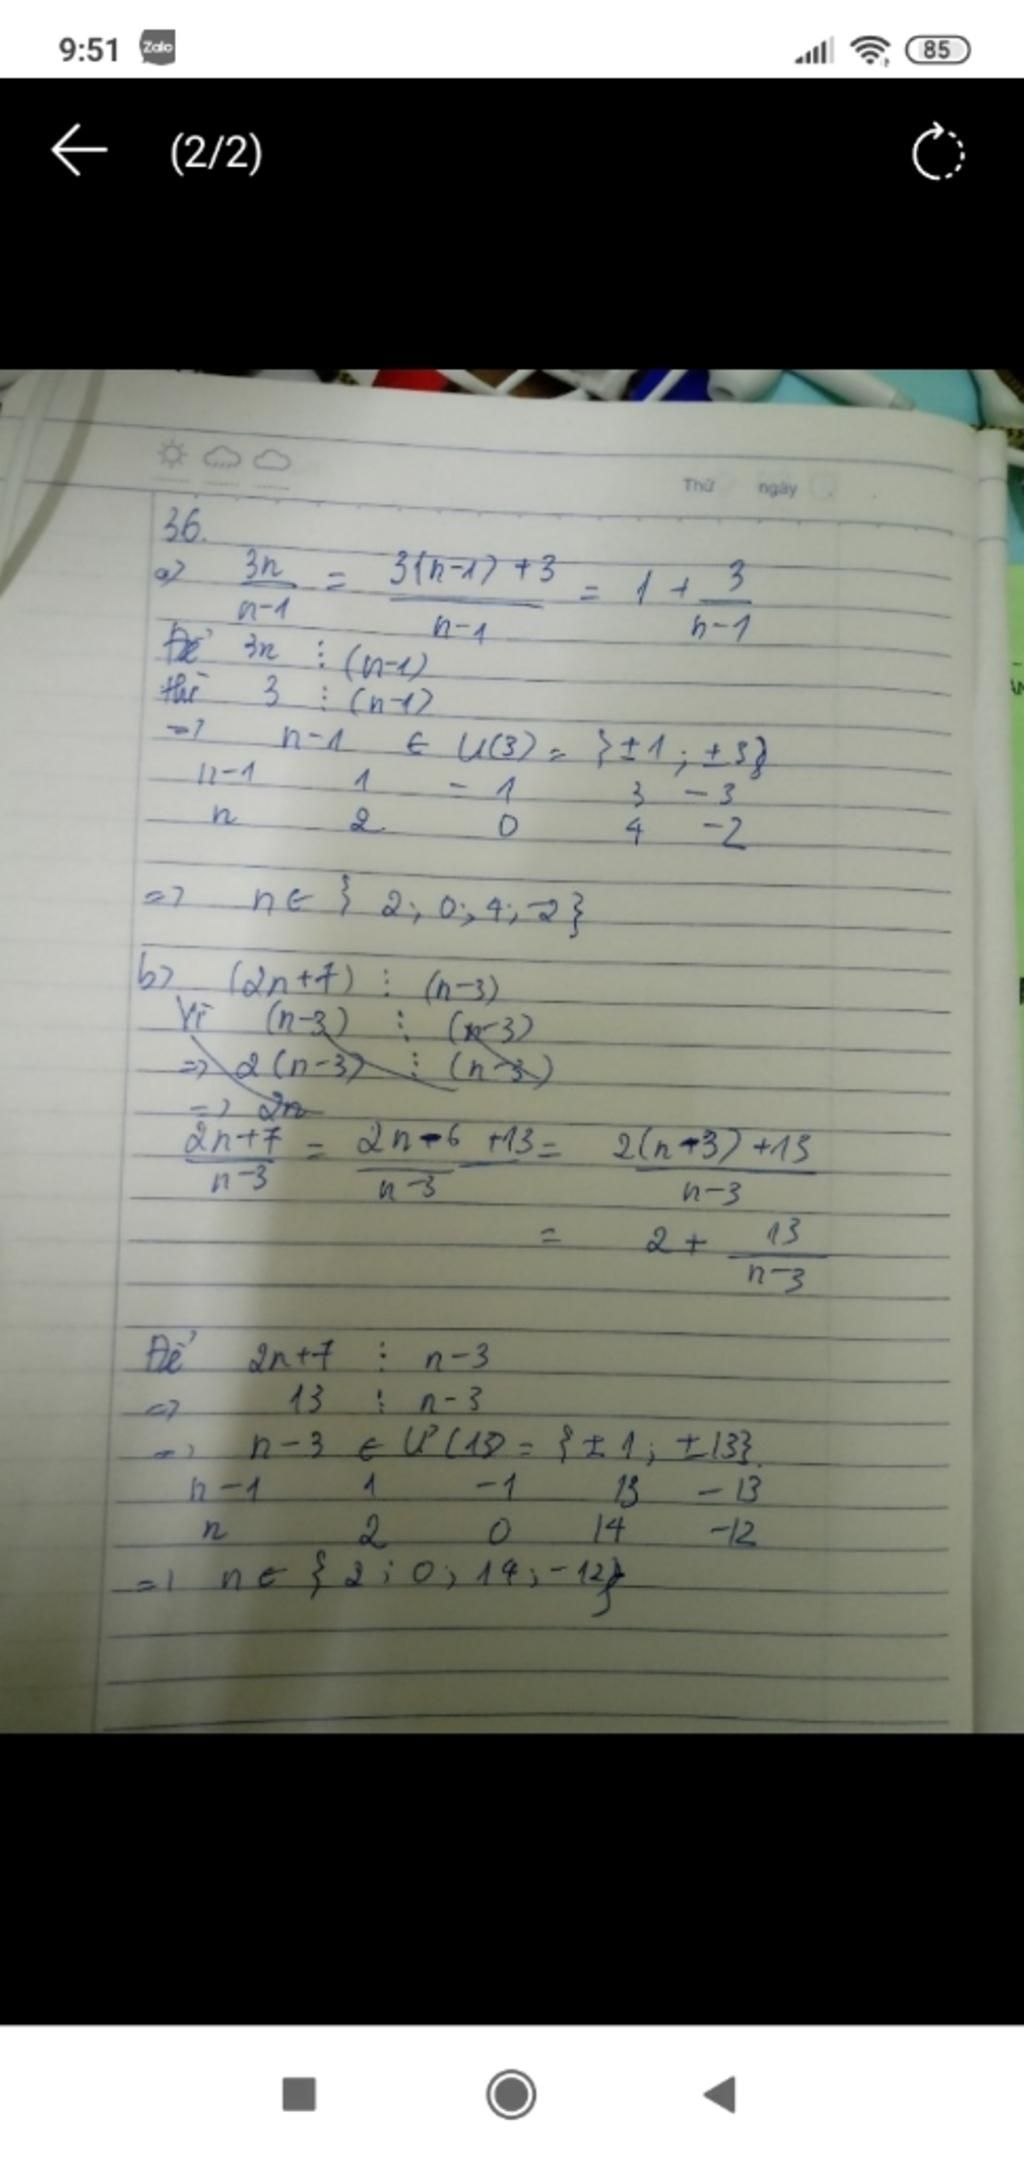 9:51 Zalo 85
(2/2)
Thứ ngày
36.
a) 3n/n-1 = 3(n-1)+3/n-1 = 1 + 3/n-1
Để 3n ⋮ (n-1)
thì 3 ⋮ (n-1)
=> n-1 ∈ Ư(3) = {±1; ±3}
n-1 1 -1 3 -3
n 2 0 4 -2
=> n ∈ { 2; 0; 4; -2}
b) (2n+7) ⋮ (n-3)
Vì (n-3) ⋮ (n-3)
=> 2(n-3) ⋮ (n-3)
=> 2n
2n+7/n-3 = 2n-6+13/n-3 = 2(n-3)+13/n-3
= 2 + 13/n-3
Để 2n+7 ⋮ n-3
=> 13 ⋮ n-3
=> n-3 ∈ Ư(13) = {±1; ±13}
n-1 1 -1 13 -13
n 2 0 14 -12
=> n ∈ {2; 0; 14; -12}